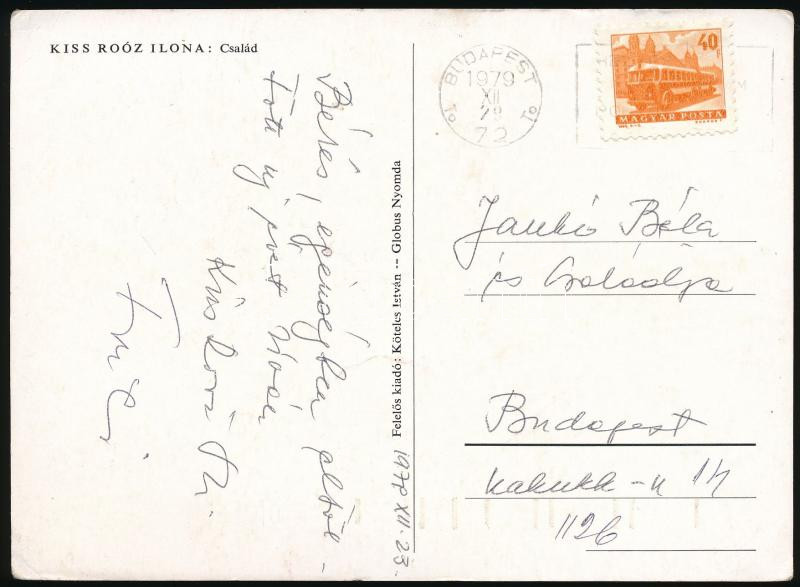 KISS ROÓZ ILONA: Család
Békés, egészségben eltöl-
tött új évet kíván
Kiss Roóz I.
Felelős kiadó: Köteles István -- Globus Nyomda
XII. 23.
BUDAPEST
1979
XII
72
40f
MAGYAR POSTA
Jankó Béla
és Családja
Budapest
Kakukk-u 14
1126